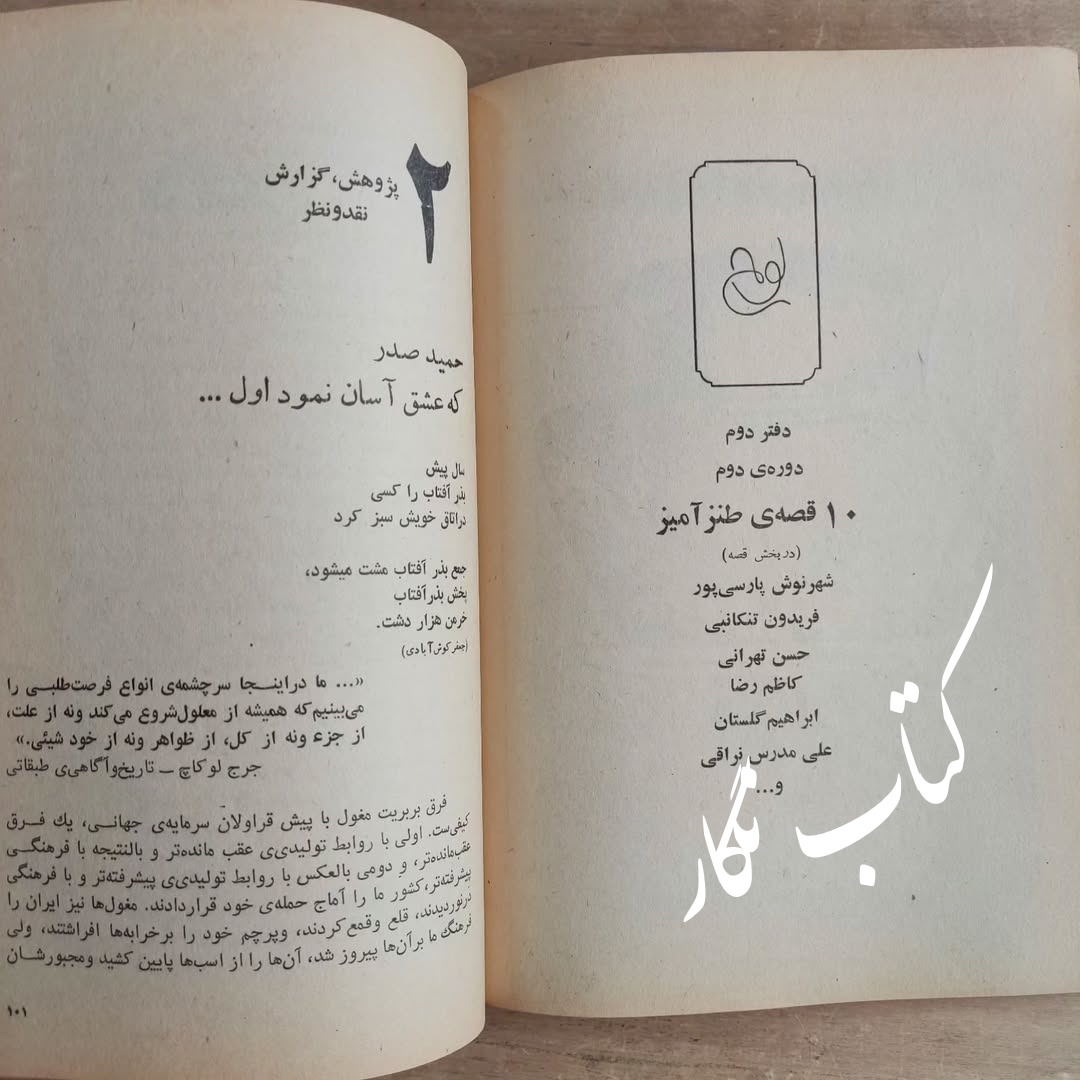 لوح
دفتر دوم
دوره‌ی دوم
۱۰ قصه‌ی طنزآمیز
(در بخش قصه)
شهرنوش پارسی‌پور
فریدون تنکابنی
حسن تهرانی
کاظم رضا
ابراهیم گلستان
علی مدرس نراقی
و...
کتاب نگار
۲
پژوهش، گزارش
نقدونظر
حمید صدر
که عشق آسان نمود اول ...
سال پیش
بذر آفتاب را کسی
دراتاق خویش سبز کرد
جمع بذر آفتاب مشت میشود،
پخش بذرآفتاب
خرمن هزار دشت.
(جعفر کوش‌آبادی)
«... ما دراینجا سرچشمه‌ی انواع فرصت‌طلبی را
می‌بینیم‌که همیشه از معلول‌شروع می‌کند ونه از علت،
از جزء ونه از کل، از ظواهر ونه از خود شیئی.»
جرج لوکاچ ـ تاریخ‌وآگاهی‌ی طبقاتی
فرق بربریت مغول با پیش قراولان سرمایه‌ی جهانی، یك فرق
کیفی‌ست. اولی با روابط تولیدی‌ی عقب مانده‌تر و بالنتیجه با فرهنگی
عقب‌مانده‌تر، و دومی بالعکس با روابط تولیدی‌ی پیشرفته‌تر و با فرهنگی
پیشرفته‌تر،کشور ما را آماج حمله‌ی خود قراردادند. مغول‌ها نیز ایران را
درنوردیدند، قلع وقمع‌کردند، وپرچم خود را برخرابه‌ها افراشتند، ولی
فرهنگ ما برآن‌ها پیروز شد، آن‌ها را از اسب‌ها پایین کشید ومجبورشان
۱۰۱